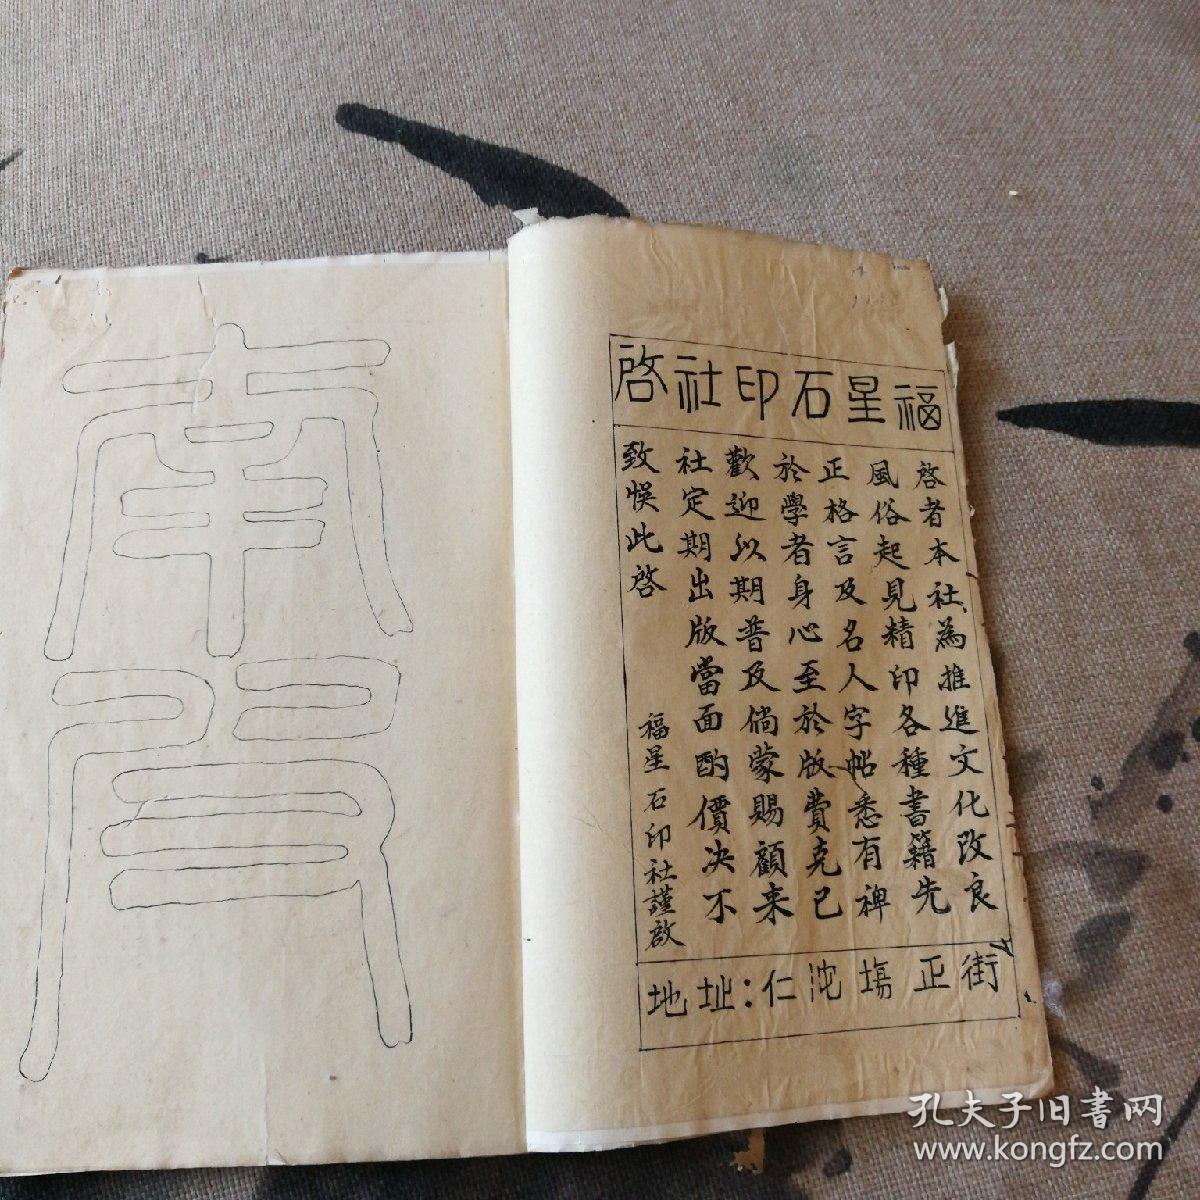 福星石印社啓
啓者本社為推進文化改良
風俗起見精印各種書籍先
正格言及名人字帖悉有裨
於學者身心至於版費克已
歡迎以期普及倘蒙賜顧来
社定期出版當面酌價决不
致悞此啓
福星石印社謹啟
地址：仁沱塲正街
孔夫子旧书网
www.kongfz.com